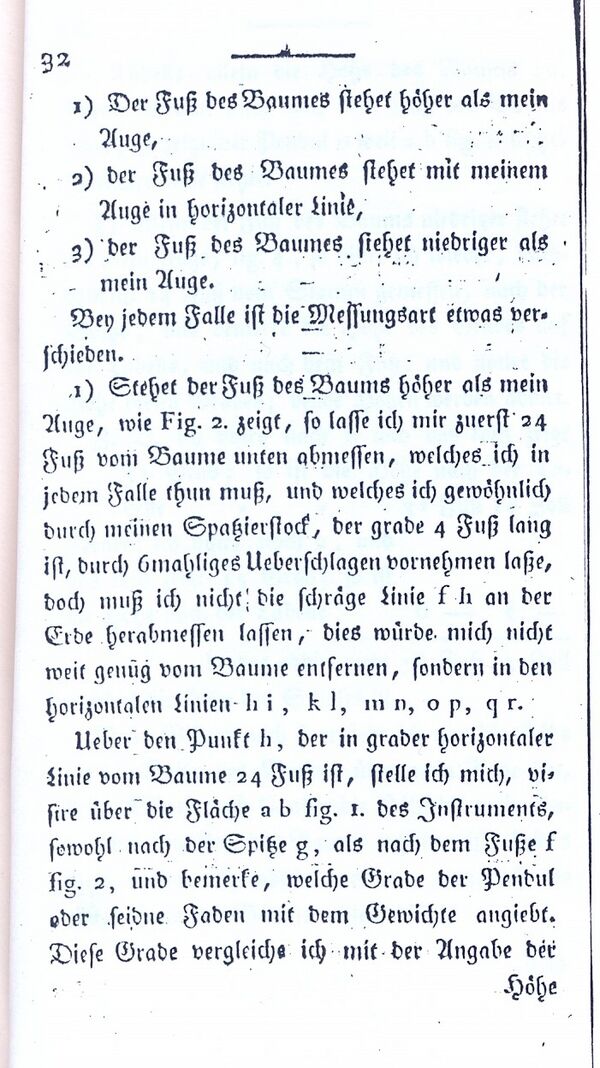 32
1) Der Fuß des Baumes stehet höher als mein
Auge,
2) der Fuß des Baumes stehet mit meinem
Auge in horizontaler Linie,
3) der Fuß des Baumes stehet niedriger als
mein Auge.
Bey jedem Falle ist die Messungsart etwas ver-
schieden.
1) Stehet der Fuß des Baums höher als mein
Auge, wie Fig. 2. zeigt, so lasse ich mir zuerst 24
Fuß vom Baume unten abmessen, welches ich in
jedem Falle thun muß, und welches ich gewöhnlich
durch meinen Spatzierstock, der grade 4 Fuß lang
ist, durch 6mahliges Ueberschlagen vornehmen laße,
doch muß ich nicht die schräge Linie f h an der
Erde herabmessen lassen, dies würde mich nicht
weit genug vom Baume entfernen, sondern in den
horizontalen Linien h i, k l, m n, o p, q r.
Ueber den Punkt h, der in grader horizontaler
Linie vom Baume 24 Fuß ist, stelle ich mich, vi-
sire über die Fläche a b fig. 1. des Instruments,
sowohl nach der Spitze g, als nach dem Fuße f
fig. 2, und bemerke, welche Grade der Pendul
oder seidne Faden mit dem Gewichte angiebt.
Diese Grade vergleiche ich mit der Angabe der
Höhe